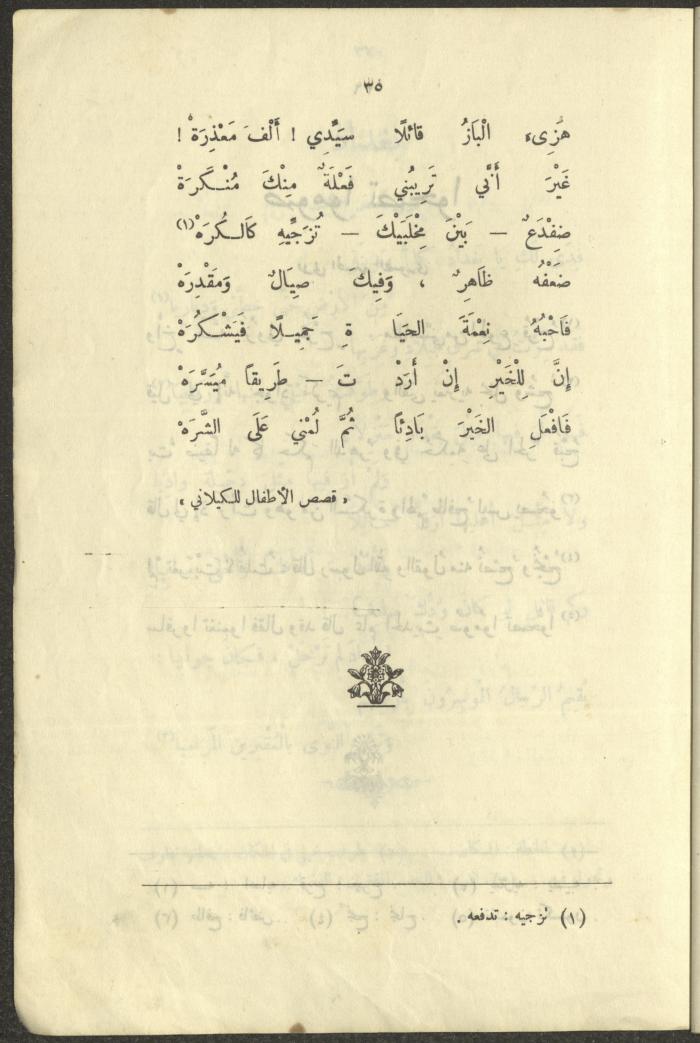 ٣٥
هَزِىءَ الْبَازُ قائلًا سَيِّدِي ! أَلْفَ مَعْذِرَةْ !
غَيْرَ أَنِّي تَرِيبُني فَعْلَةٌ مِنْكَ مُنْكَرَةْ
ضفْدَعٌ – بَيْنَ مِخْلَبَيْكَ – تُزَجِّيهِ كَالكُرَهْ(١)
ضَعْفُه ظَاهِرٌ ، وَفِيكَ صِيَالٌ وَمَقْدِرَهْ
فَاحْبُهُ نِعْمَةَ الحَيَا ةِ جَمِيلًا فَيَشْكُرَهْ
إِنَّ لِلْخَيْرِ إِنْ أَرَدْ تَ – طَرِيقاً مُيَسَّرَهْ
فَافْعَلِ الخَيْرَ بَادِئاً ثُمَّ لُمْنِي عَلَى الشَّرَهْ
« قصص الأطفال للكيلاني »
(١) تزجيه : تدفعه .